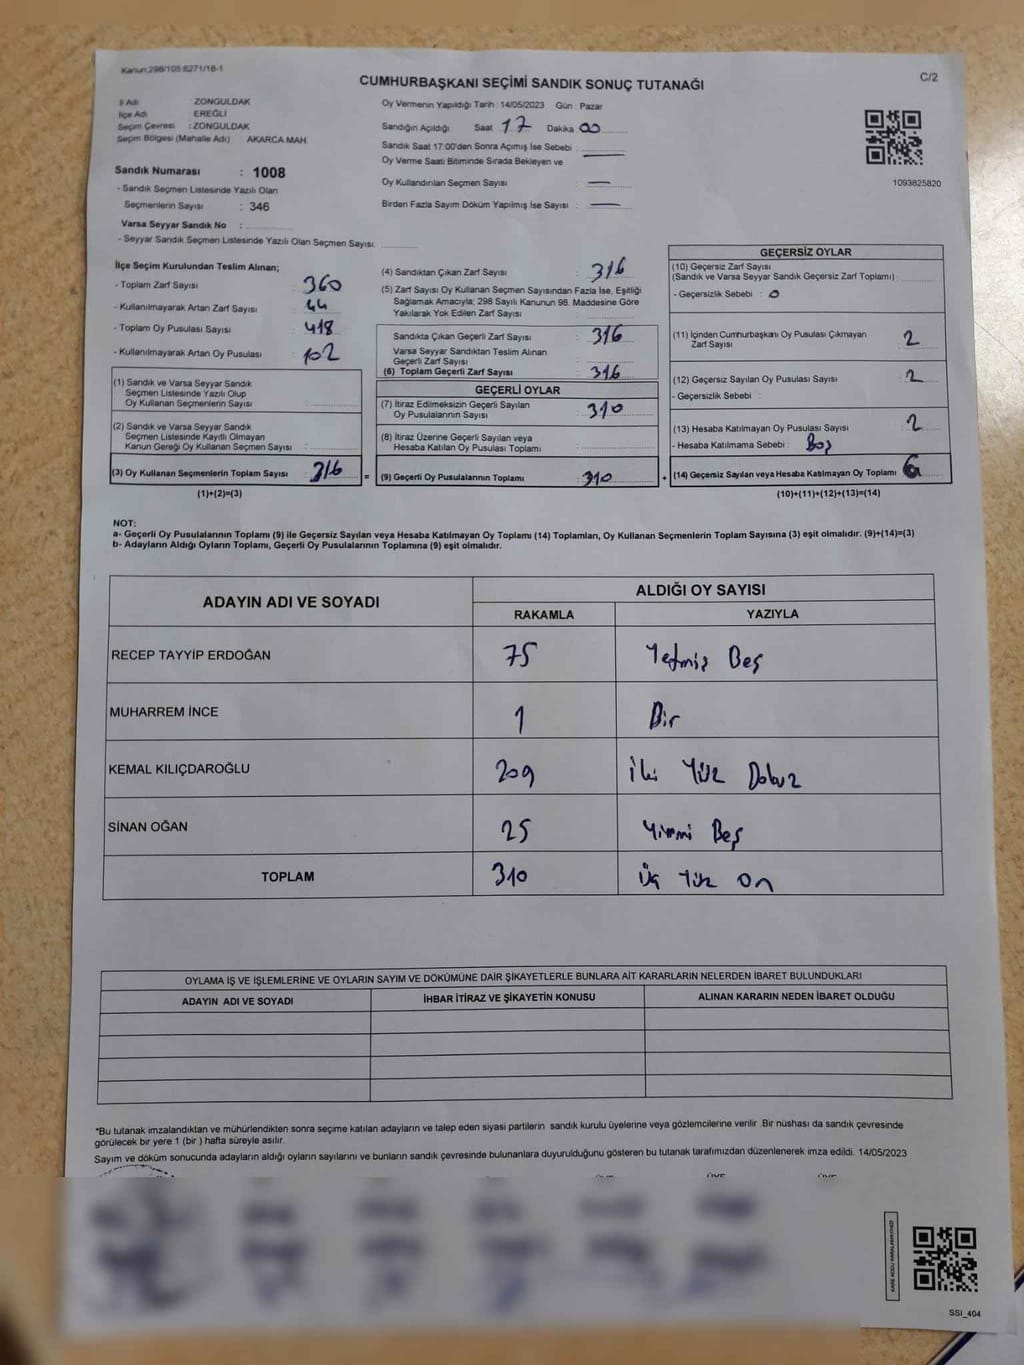 Kanun:298/105.6271/18-1
C/2
CUMHURBAŞKANI SEÇİMİ SANDIK SONUÇ TUTANAĞI
İl Adı ZONGULDAK
İlçe Adı EREĞLİ
Seçim Çevresi : ZONGULDAK
Seçim Bölgesi (Mahalle Adı) : AKARCA MAH.
Sandık Numarası : 1008
- Sandık Seçmen Listesinde Yazılı Olan
Seçmenlerin Sayısı : 346
Varsa Seyyar Sandık No :
- Seyyar Sandık Seçmen Listesinde Yazılı Olan Seçmen Sayısı:
Oy Vermenin Yapıldığı Tarih : 14/05/2023 Gün : Pazar
Sandığın Açıldığı Saat 17 Dakika 00
Sandık Saat 17:00'den Sonra Açımış İse Sebebi :
Oy Verme Saati Bitiminde Sırada Bekleyen ve
Oy Kullandırılan Seçmen Sayısı : —
Birden Fazla Sayım Döküm Yapılmış İse Sayısı : —
1093825820
İlçe Seçim Kurulundan Teslim Alınan;
- Toplam Zarf Sayısı : 360
- Kullanılmayarak Artan Zarf Sayısı : 44
- Toplam Oy Pusulası Sayısı : 418
- Kullanılmayarak Artan Oy Pusulası : 102
(1) Sandık ve Varsa Seyyar Sandık
Seçmen Listesinde Yazılı Olup
Oy Kullanan Seçmenlerin Sayısı :
(2) Sandık ve Varsa Seyyar Sandık
Seçmen Listesinde Kayıtlı Olmayan
Kanun Gereği Oy Kullanan Seçmen Sayısı :
(3) Oy Kullanan Seçmenlerin Toplam Sayısı : 316
(1)+(2)=(3)
(4) Sandıktan Çıkan Zarf Sayısı : 316
(5) Zarf Sayısı Oy Kullanan Seçmen Sayısından Fazla İse, Eşitliği
Sağlamak Amacıyla; 298 Sayılı Kanunun 98. Maddesine Göre
Yakılarak Yok Edilen Zarf Sayısı :
Sandıkta Çıkan Geçerli Zarf Sayısı : 316
Varsa Seyyar Sandıktan Teslim Alınan
Geçerli Zarf Sayısı :
(6) Toplam Geçerli Zarf Sayısı : 316
GEÇERLİ OYLAR
(7) İtiraz Edilmeksizin Geçerli Sayılan
Oy Pusulalarının Sayısı : 310
(8) İtiraz Üzerine Geçerli Sayılan veya
Hesaba Katılan Oy Pusulası Toplamı :
= (9) Geçerli Oy Pusulalarının Toplamı : 310
GEÇERSİZ OYLAR
(10) Geçersiz Zarf Sayısı
(Sandık ve Varsa Seyyar Sandık Geçersiz Zarf Toplamı) :
- Geçersizlik Sebebi : 0
(11) İçinden Cumhurbaşkanı Oy Pusulası Çıkmayan
Zarf Sayısı : 2
(12) Geçersiz Sayılan Oy Pusulası Sayısı : 2
- Geçersizlik Sebebi :
(13) Hesaba Katılmayan Oy Pusulası Sayısı : 2
- Hesaba Katılmama Sebebi : Boş
+ (14) Geçersiz Sayılan veya Hesaba Katılmayan Oy Toplamı 6
(10)+(11)+(12)+(13)=(14)
NOT:
a- Geçerli Oy Pusulalarının Toplamı (9) ile Geçersiz Sayılan veya Hesaba Katılmayan Oy Toplamı (14) Toplamları, Oy Kullanan Seçmenlerin Toplam Sayısına (3) eşit olmalıdır. (9)+(14)=(3)
b- Adayların Aldığı Oyların Toplamı, Geçerli Oy Pusulalarının Toplamına (9) eşit olmalıdır.
ADAYIN ADI VE SOYADI
ALDIĞI OY SAYISI
RAKAMLA YAZIYLA
RECEP TAYYİP ERDOĞAN 75 Yetmiş Beş
MUHARREM İNCE 1 Bir
KEMAL KILIÇDAROĞLU 209 İki Yüz Dokuz
SİNAN OĞAN 25 Yirmi Beş
TOPLAM 310 Üç Yüz On
OYLAMA İŞ VE İŞLEMLERİNE VE OYLARIN SAYIM VE DÖKÜMÜNE DAİR ŞİKAYETLERLE BUNLARA AİT KARARLARIN NELERDEN İBARET BULUNDUKLARI
ADAYIN ADI VE SOYADI İHBAR İTİRAZ VE ŞİKAYETİN KONUSU ALINAN KARARIN NEDEN İBARET OLDUĞU
*Bu tutanak imzalandıktan ve mühürlendikten sonra seçime katılan adayların ve talep eden siyasi partilerin sandık kurulu üyelerine veya gözlemcilerine verilir .Bir nüshası da sandık çevresinde
görülecek bir yere 1 (bir ) hafta süreyle asılır.
Sayım ve döküm sonucunda adayların aldığı oyların sayılarını ve bunların sandık çevresinde bulunanlara duyurulduğunu gösteren bu tutanak tarafımızdan düzenlenerek imza edildi. 14/05/2023
KARE KODU KARALAMAYINIZ!
SSI_404